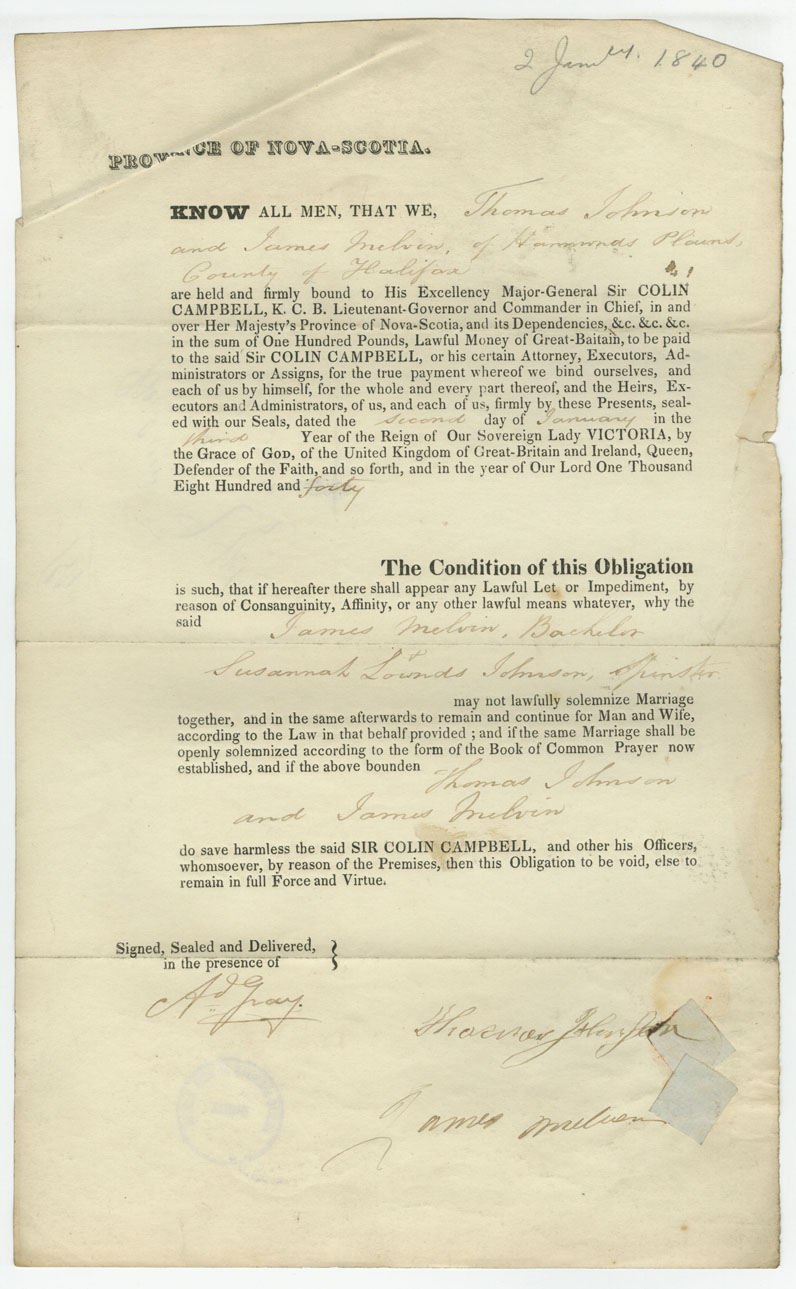 2 Jany. 1840
PROVINCE OF NOVA-SCOTIA.
KNOW ALL MEN, THAT WE, Thomas Johnson
and James Melvin, of Hammonds Plains,
County of Halifax
are held and firmly bound to His Excellency Major-General Sir COLIN
CAMPBELL, K. C. B. Lieutenant-Governor and Commander in Chief, in and
over Her Majesty's Province of Nova-Scotia, and its Dependencies, &c. &c. &c.
in the sum of One Hundred Pounds, Lawful Money of Great-Baitain, to be paid
to the said Sir COLIN CAMPBELL, or his certain Attorney, Executors, Ad-
ministrators or Assigns, for the true payment whereof we bind ourselves, and
each of us by himself, for the whole and every part thereof, and the Heirs, Ex-
ecutors and Administrators, of us, and each of us, firmly by these Presents, seal-
ed with our Seals, dated the second day of January in the
third Year of the Reign of Our Sovereign Lady VICTORIA, by
the Grace of GOD, of the United Kingdom of Great-Britain and Ireland, Queen,
Defender of the Faith, and so forth, and in the year of Our Lord One Thousand
Eight Hundred and forty
The Condition of this Obligation
is such, that if hereafter there shall appear any Lawful Let or Impediment, by
reason of Consanguinity, Affinity, or any other lawful means whatever, why the
said James Melvin, Bachelor
Susannah Lownds Johnson, Spinster
may not lawfully solemnize Marriage
together, and in the same afterwards to remain and continue for Man and Wife,
according to the Law in that behalf provided ; and if the same Marriage shall be
openly solemnized according to the form of the Book of Common Prayer now
established, and if the above bounden Thomas Johnson
and James Melvin
do save harmless the said SIR COLIN CAMPBELL, and other his Officers,
whomsoever, by reason of the Premises, then this Obligation to be void, else to
remain in full Force and Virtue.
Signed, Sealed and Delivered,
in the presence of
Ad. Gray.
Thomas Johnson
James Melvin